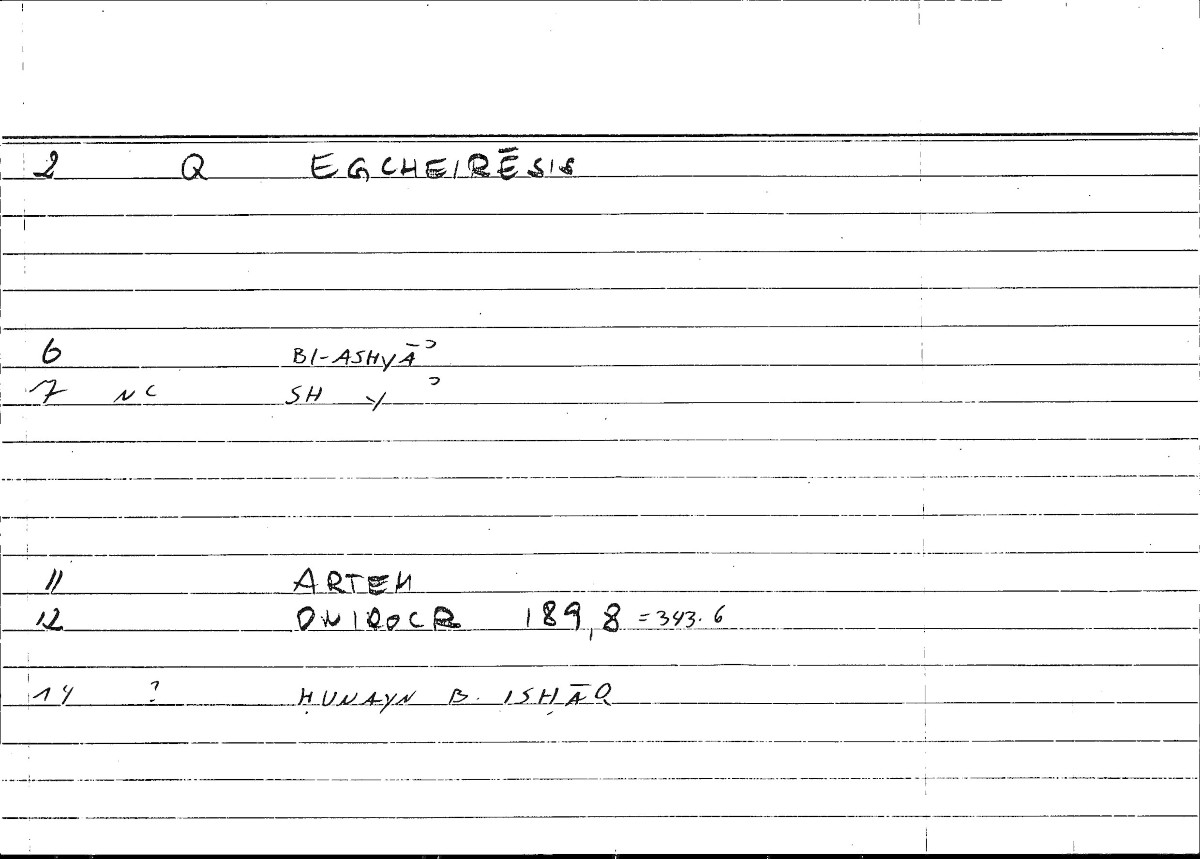 2 Q EGCHEIRĒSIS
6 BI-ASHYĀʾ
7 NC SH Y ʾ
11 ARTEM
12 ONIROCR 189,8 = 343.6
14 ? ḤUNAYN B. ISḤĀQ